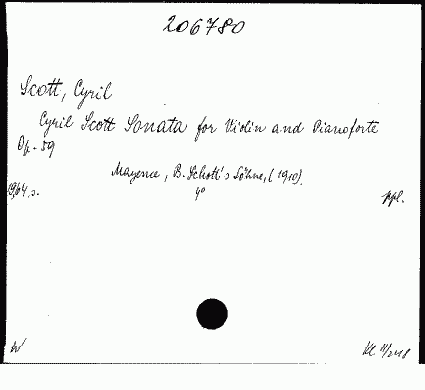 206780
Scott, Cyril
Cyril Scott Sonata for Violin and Pianoforte
Op. 59
Mayence, B. Schott's Söhne, (1910).
19,64, s. 4° ppl.
W